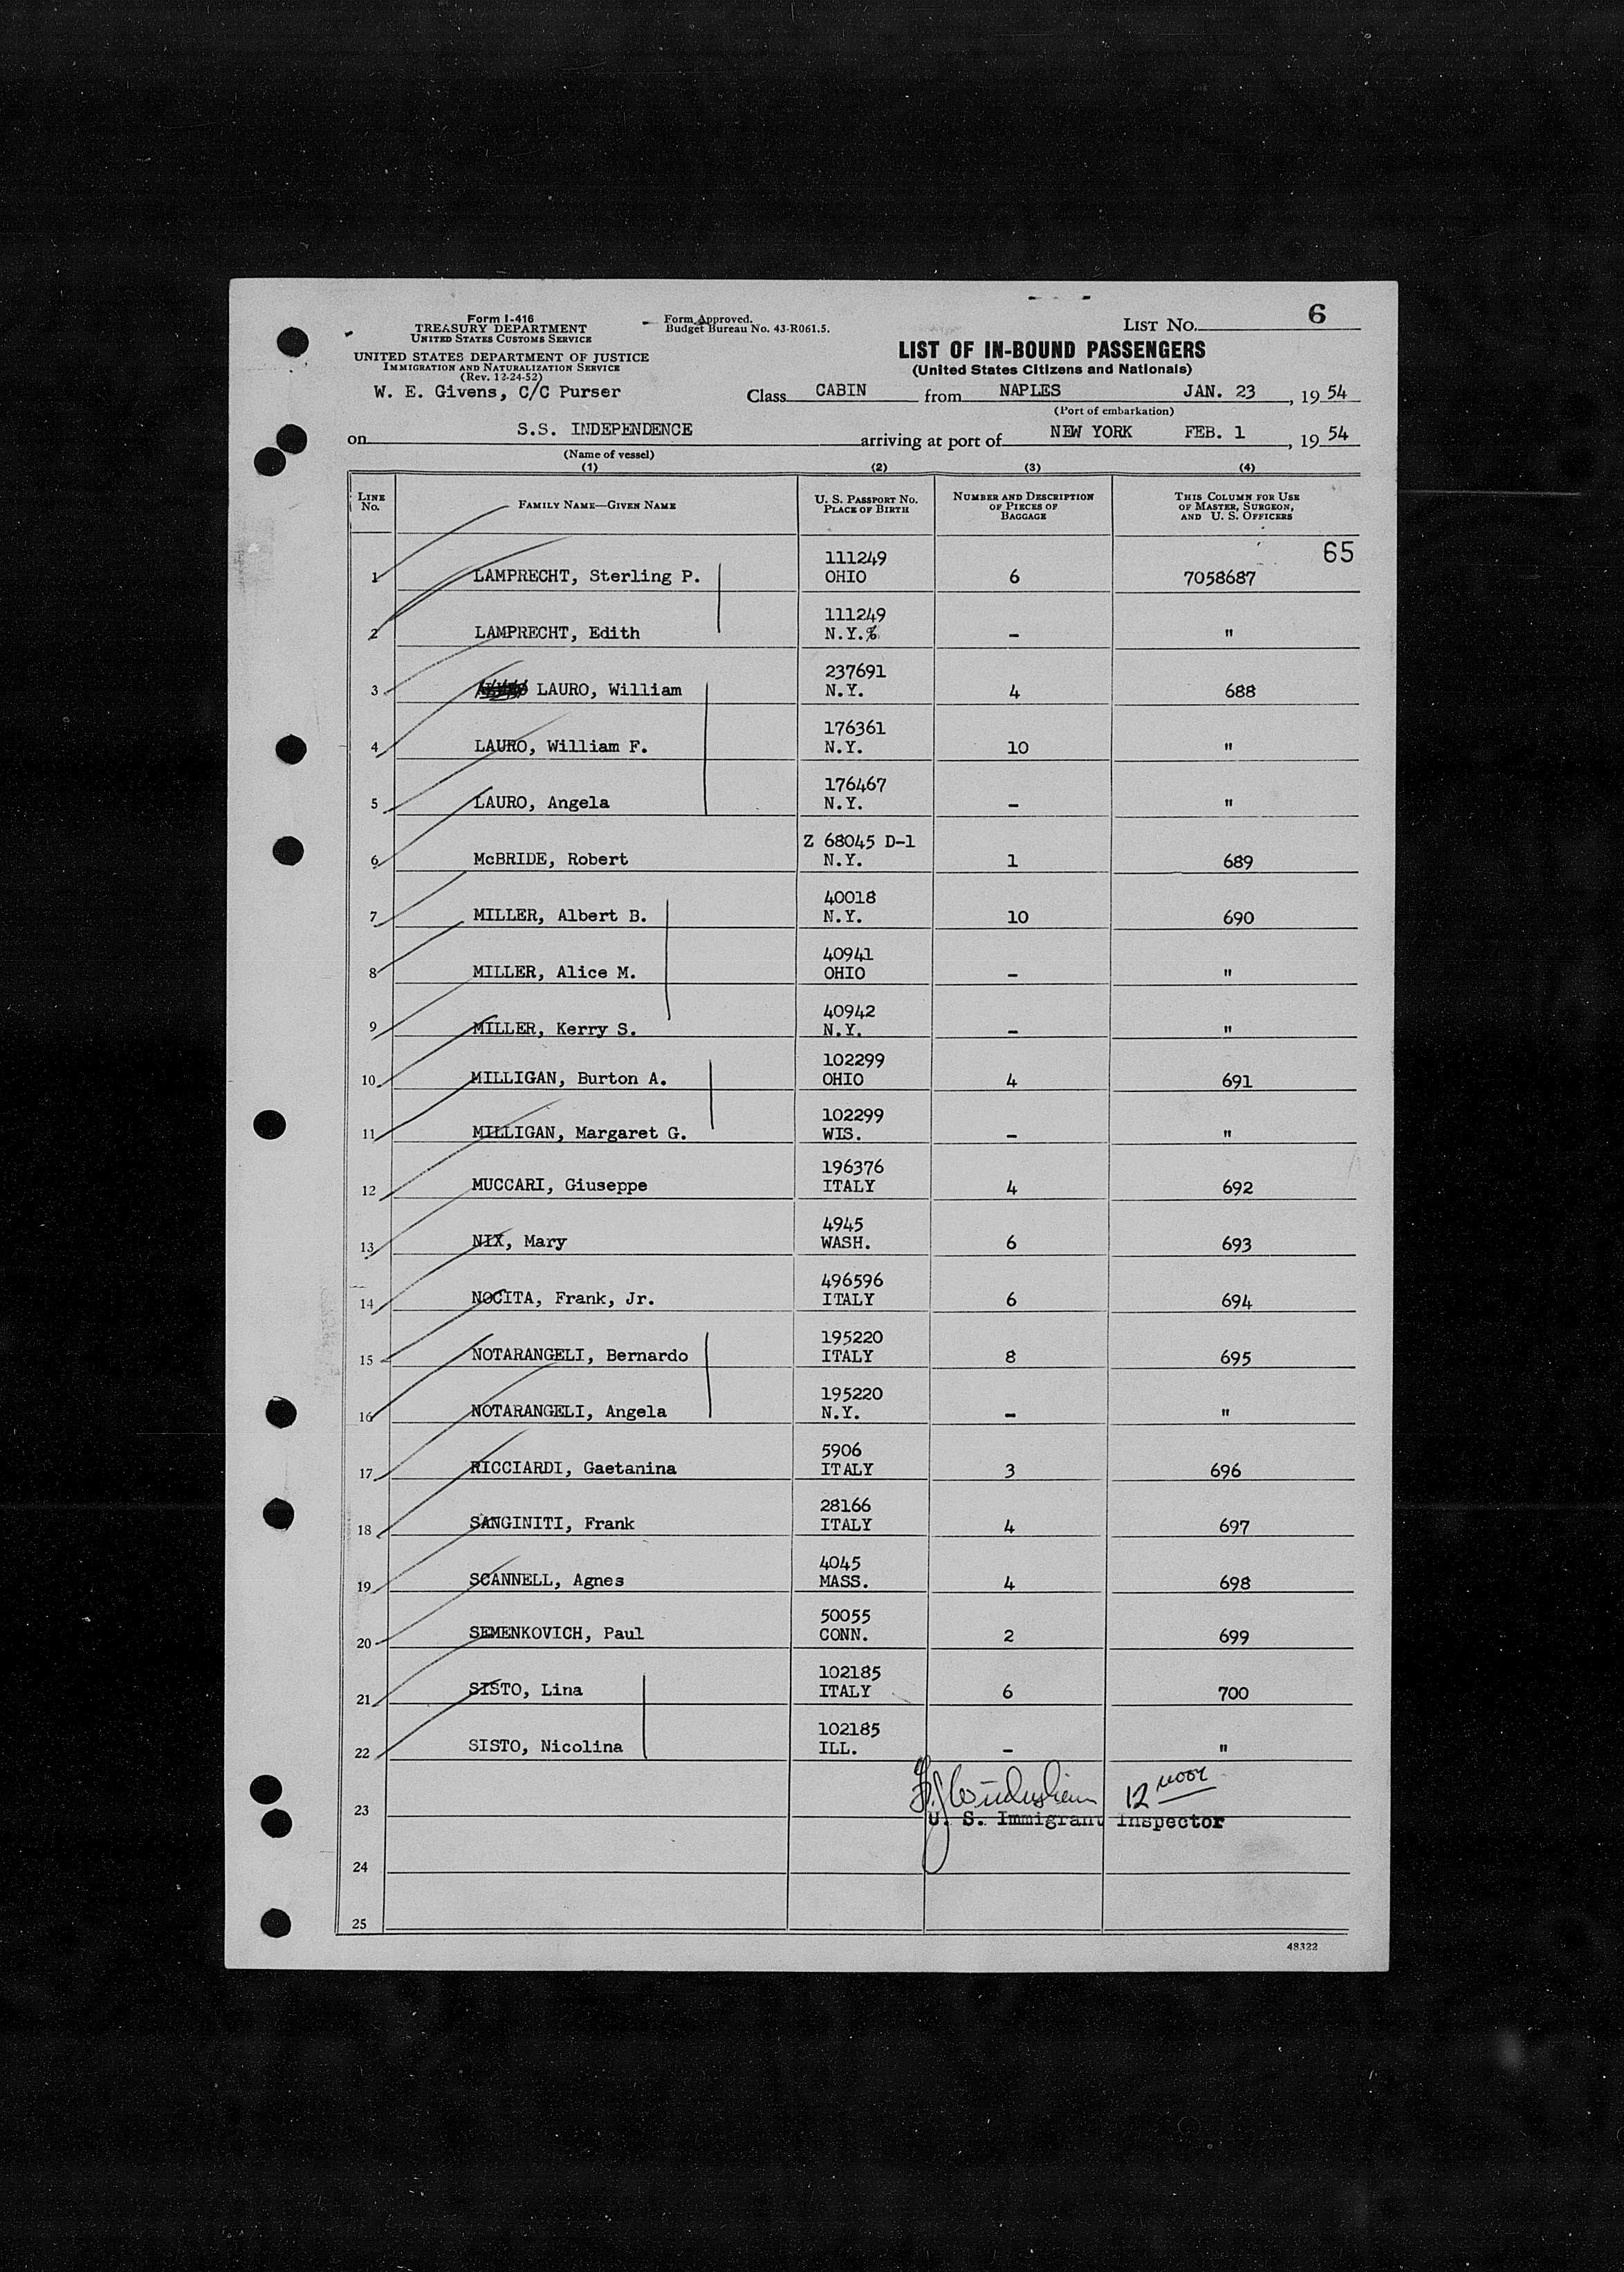 Form I-416
TREASURY DEPARTMENT
UNITED STATES CUSTOMS SERVICE
UNITED STATES DEPARTMENT OF JUSTICE
IMMIGRATION AND NATURALIZATION SERVICE
(Rev. 12-24-52)
W. E. Givens, C/C Purser
Form Approved.
Budget Bureau No. 43-R061.5.
LIST No. 6
LIST OF IN-BOUND PASSENGERS
(United States Citizens and Nationals)
Class CABIN from NAPLES JAN. 23, 1954
(Port of embarkation)
on S.S. INDEPENDENCE arriving at port of NEW YORK FEB. 1, 1954
(Name of vessel)
(1) (2) (3) (4)
LINE No. FAMILY NAME—GIVEN NAME U. S. PASSPORT No. PLACE OF BIRTH NUMBER AND DESCRIPTION OF PIECES OF BAGGAGE THIS COLUMN FOR USE OF MASTER, SURGEON, AND U. S. OFFICERS
65
111249
1 LAMPRECHT, Sterling P. OHIO 6 7058687
111249
2 LAMPRECHT, Edith N.Y.% - "
237691
3 LAURO, William N.Y. 4 688
176361
4 LAURO, William F. N.Y. 10 "
176467
5 LAURO, Angela N.Y. - "
Z 68045 D-1
6 McBRIDE, Robert N.Y. 1 689
40018
7 MILLER, Albert B. N.Y. 10 690
40941
8 MILLER, Alice M. OHIO - "
40942
9 MILLER, Kerry S. N.Y. - "
102299
10 MILLIGAN, Burton A. OHIO 4 691
102299
11 MILLIGAN, Margaret G. WIS. - "
196376
12 MUCCARI, Giuseppe ITALY 4 692
4945
13 NIX, Mary WASH. 6 693
496596
14 NOCITA, Frank, Jr. ITALY 6 694
195220
15 NOTARANGELI, Bernardo ITALY 8 695
195220
16 NOTARANGELI, Angela N.Y. - "
5906
17 RICCIARDI, Gaetanina ITALY 3 696
28166
18 SANGINITI, Frank ITALY 4 697
4045
19 SCANNELL, Agnes MASS. 4 698
50055
20 SEMENKOVICH, Paul CONN. 2 699
102185
21 SISTO, Lina ITALY 6 700
102185
22 SISTO, Nicolina ILL. - "
12 noon
23 U. S. Immigrant Inspector
24
25
48322